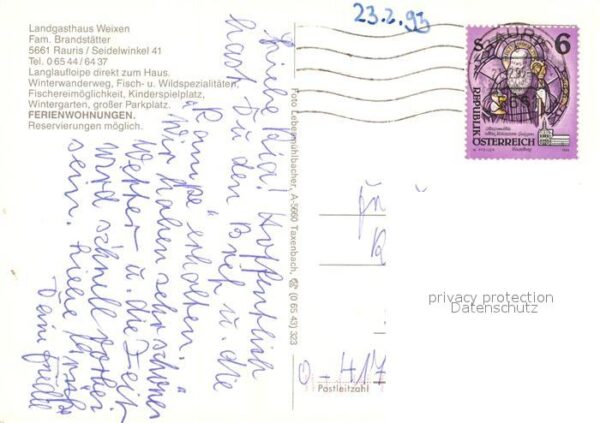 Landgasthaus Weixen
Fam. Brandstätter
5661 Rauris / Seidelwinkel 41
Tel. 0 65 44 / 64 37
Langlaufloipe direkt zum Haus.
Winterwanderweg, Fisch- u. Wildspezialitäten,
Fischereimöglichkeit, Kinderspielplatz,
Wintergarten, großer Parkplatz.
FERIENWOHNUNGEN.
Reservierungen möglich.
23.2.93
S 6
REPUBLIK
ÖSTERREICH
Liebe ! Hoffentlich
hast Du den Brief u. die
"Rampe" erhalten.
Wir haben sehr schönes
Wetter u. die Zeit
wird schnell vorbei
sein. Liebe Grüße
Deine Friedl
Foto Lebesmühlbacher, A-5660 Taxenbach, ☎ (0 65 43) 323
privacy protection
Datenschutz
D-417
Postleitzahl